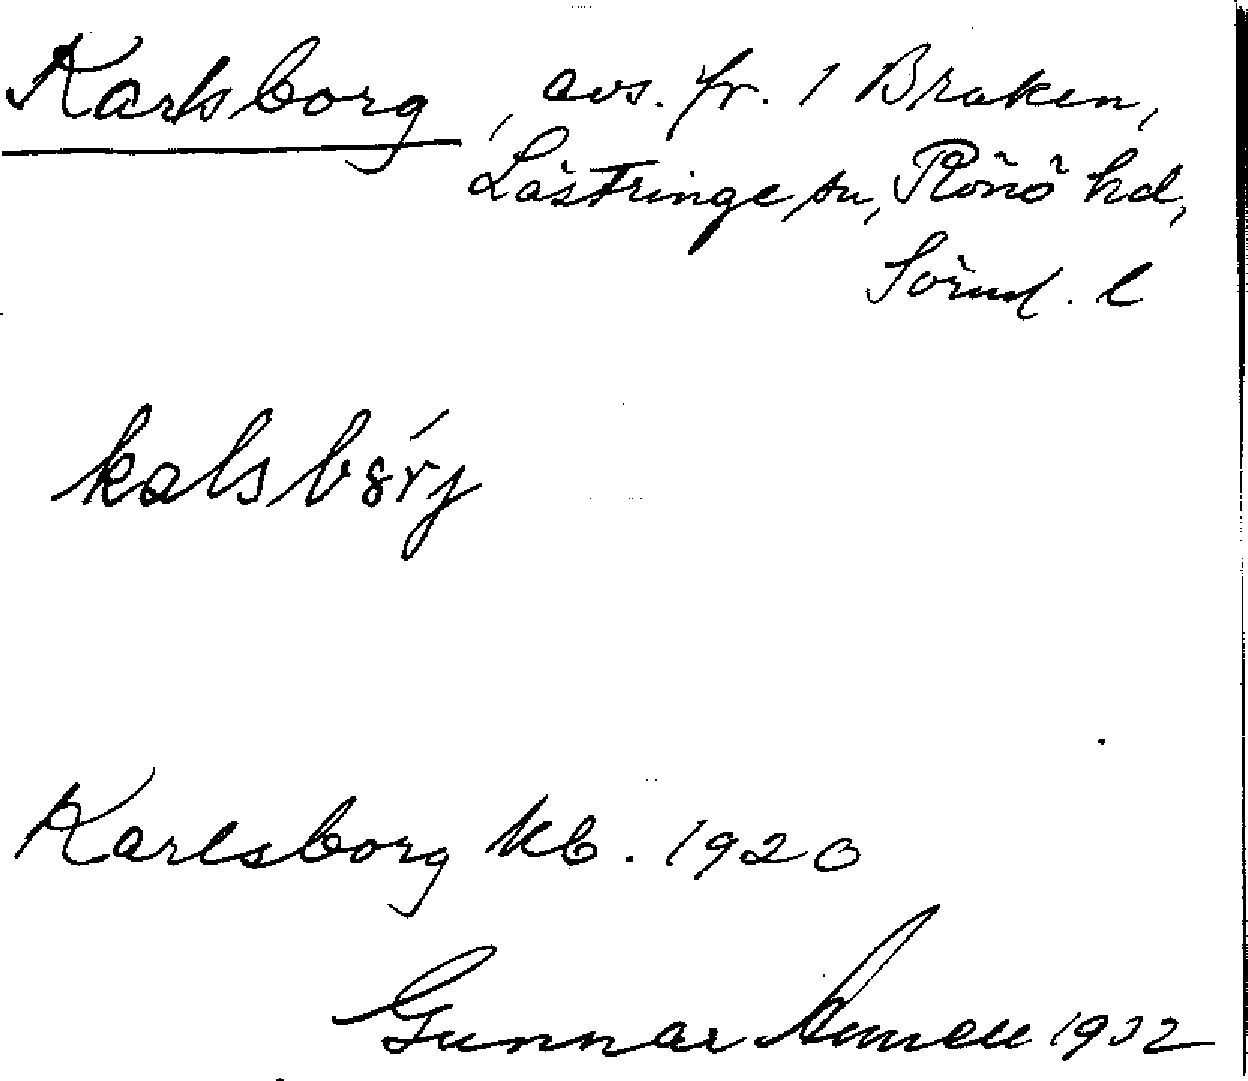 Karlsborg, avs. fr. 1 Braken,
Lästringe sn, Rönö hd,
Sörml. l
kalsbȯrj
Karlsborg kb. 1920
Gunnar 1932